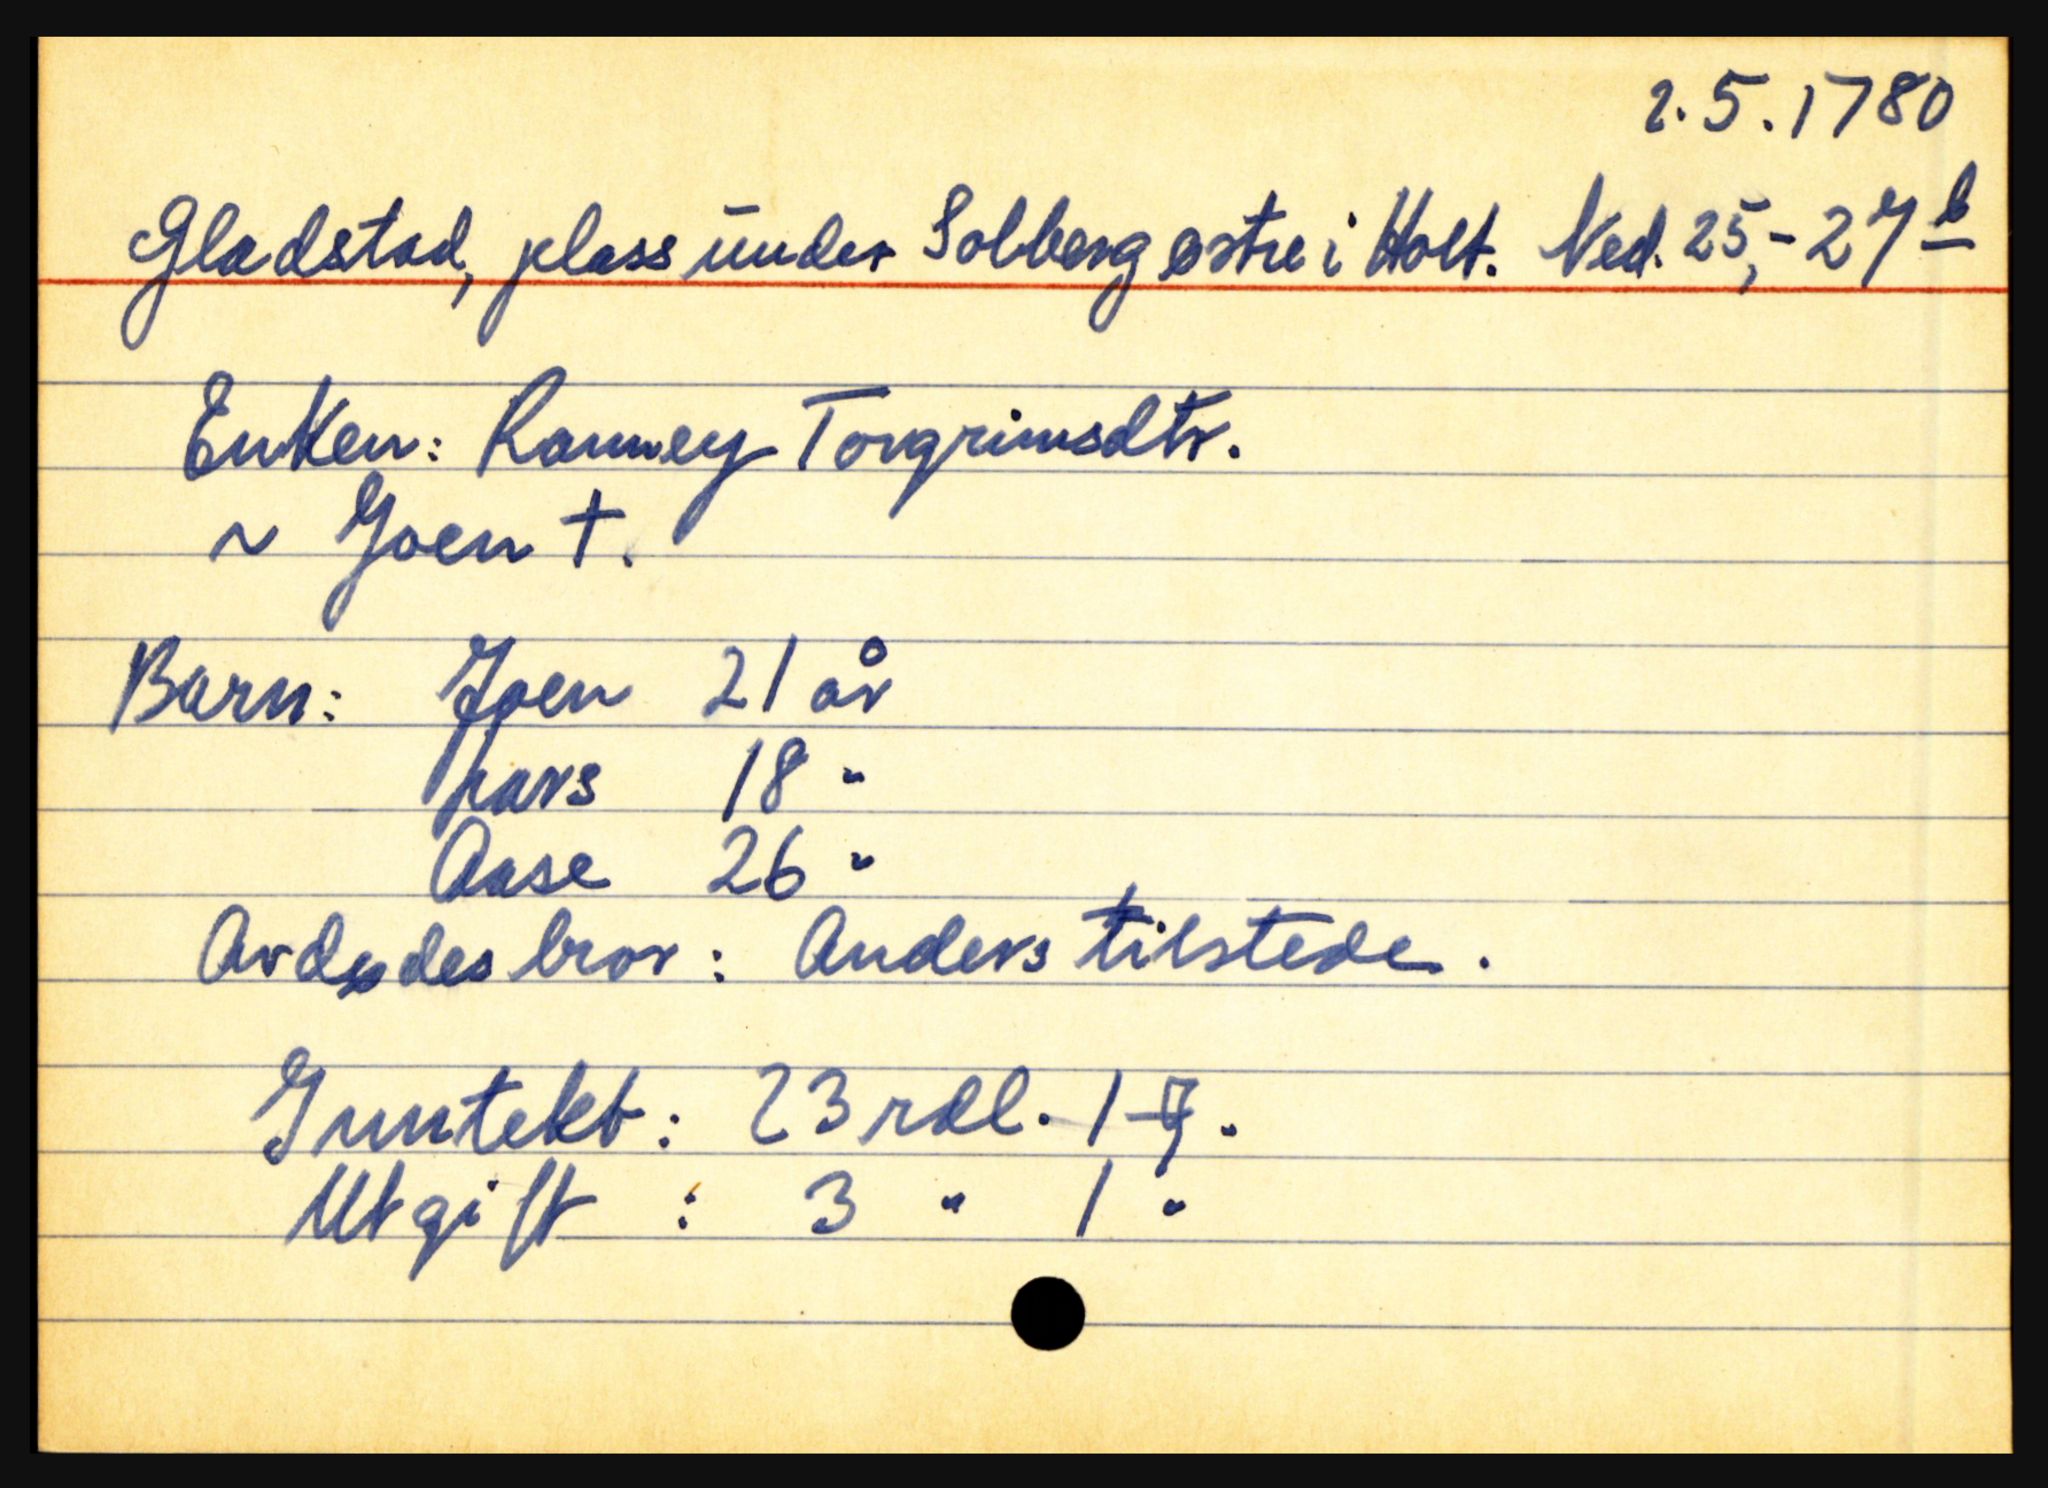 2.5.1780
Gladstad, plass under Solberg østre i Holt. Ned. 25,-27 b
Enken: Ranney Torgrimsdtr.
~ Joen †.
Barn: Joen 21 år
Lars 18 "
Aase 26 "
Avdødes bror: Anders tilstede.
Inntekt: 23 rdl. 1-7.
Utgift : 3 " 1 "